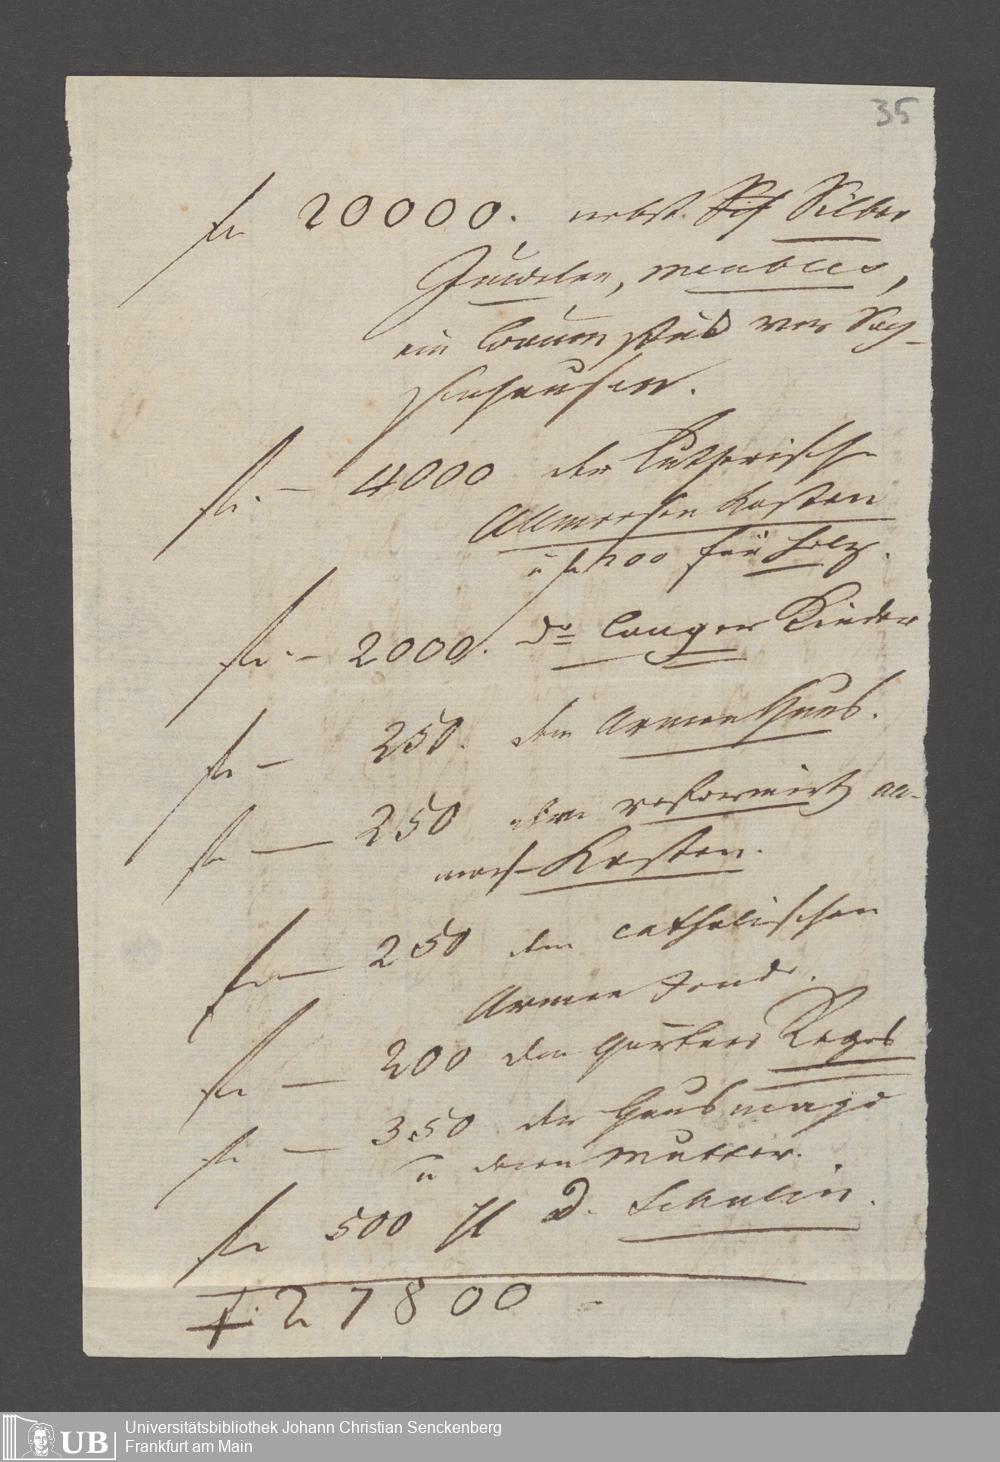 35
fl 20000. nebst Silber
Juwelen, Meubles,
ein Braun Stück von Sach-
senhausen.
fl. — 4000 der Lutherisch
Allmosen Kasten
u fl 200 für Holz.
fl. — 2000. Do Kinder
fl — 250. dem Armenhaus.
fl — 250 dem reformirt All-
mosen Kasten.
fl — 250 dem catholischen
Armen Fond.
fl — 200 den Gärtner
fl — 350 der Hausmagd
u deren Mutter.
fl 500 H D. Schulin.
f. 27800 -
UB
Universitätsbibliothek Johann Christian Senckenberg
Frankfurt am Main